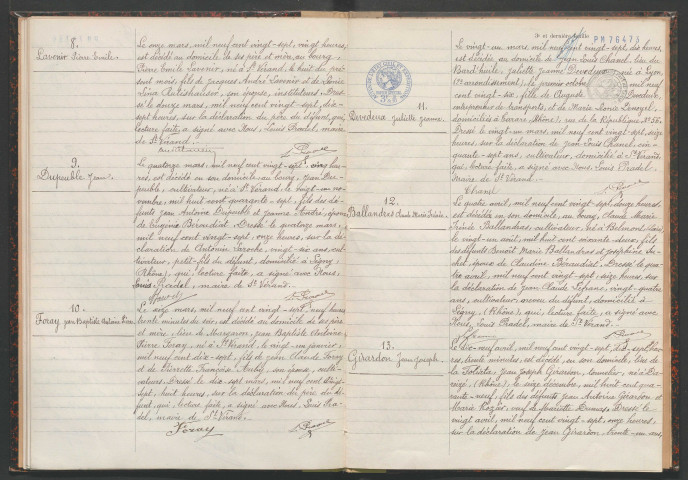 8.
Lavenir Pierre Emile
Le onze mars, mil neuf cent vingt-sept, vingt heures,
est décédé au domicile de ses père et mère, au bourg,
Pierre Emile Lavenir, né à St Vérand, le huit du pré-
sent mois, fils de Jacques André Lavenir et de Louise
son épouse, instituteurs. Dres-
sé le douze mars, mil neuf cent vingt-sept, dix-
sept heures, sur la déclaration du père du défunt, qui,
lecture faite, a signé avec Nous, Louis Pradel, maire
de St Vérand.
9.
Dupeuble Jean
Le quatorze mars, mil neuf cent vingt-sept, cinq heu-
res, est décédé en son domicile au bourg, Jean Du-
peuble, cultivateur, né à St Vérand, le vingt un no-
vembre, mil huit cent quarante-sept, fils des dé-
funts Jean Antoine Dupeuble et Jeanne André, époux
de Eugénie Bérardial. Dressé le quatorze mars,
mil neuf cent vingt-sept, onze heures, sur la dé-
claration de Antonin Laroche, vingt-six ans, cul-
tivateur, petit-fils du défunt, domicilié à Légny
(Rhône), qui, lecture faite, a signé avec Nous,
Louis Pradel, maire de St Vérand.
10.
Foray Jean Baptiste Antoine Pierre
Le seize mars, mil neuf cent vingt-sept, neuf heures
trente minutes du soir, est décédé au domicile de ses père
et mère, lieu de Jean Baptiste Antoine
Pierre Foray, né à St Vérand, le vingt un janvier,
mil neuf cent dix-sept, fils de Jean Claude Foray
et de Pierrette Françoise son épouse, culti-
vateurs. Dressé le dix-sept mars, mil neuf cent vingt-
sept, huit heures, sur la déclaration du père du dé-
funt, qui, lecture faite, a signé avec Nous, Louis Pra-
del, maire de St Vérand.
Foray
2e et dernière feuille
PM 76473
11.
Devideux Juliette Jeanne
Le vingt-un mars, mil neuf cent vingt-sept, dix heures,
est décédée, au domicile de Jean Louis Chanel, lieu du
Bard'huile, Juliette Jeanne Devideux, née à Lyon,
octobre, mil neuf
cent vingt-six, fille de Auguste Devideux,
entrepreneur de transports, et de Marie Louise
domiciliés à Tarare (Rhône), rue de la République No 56.
Dressé le vingt-un mars, mil neuf cent vingt-sept, seize
heures, sur la déclaration de Jean Louis Chanel, cin-
quante-sept ans, cultivateur, domicilié à St Vérand,
qui, lecture faite, a signé avec Nous, Louis Pradel,
maire de St Vérand.
Chanel
12.
Ballandras Claude Marie Frédéric
Le quatre avril, mil neuf cent vingt-sept, douze heures,
est décédé en son domicile, au bourg, Claude Marie
Ballandras, cultivateur, né à Belmont (Rhône),
le vingt un août, mil huit cent soixante-deux, fils
des défunts Benoît Marie Ballandras et Joséphine
époux de Claudine Bérardial. Dressé le qua-
tre avril, mil neuf cent vingt-sept, seize heures, sur
la déclaration de Jean Claude vingt-quatre
ans, cultivateur, neveu du défunt, domicilié à
Légny, (Rhône), qui, lecture faite, a signé avec
Nous, Louis Pradel, maire de St Vérand.
13.
Girardon Jean Joseph
Le dix-neuf avril, mil neuf cent vingt-sept, dix-sept heu-
res, trente minutes, est décédé, en son domicile, lieu de
la Jean Joseph Girardon, tonnelier, né à
(Rhône), le seize décembre, mil huit cent qua-
rante-neuf, fils des défunts Jean Antoine Girardon et
Marie Rozier, veuf de Dressé le
vingt avril, mil neuf cent vingt-sept, onze heures,
sur la déclaration de Jean Girardon, trente-un ans,